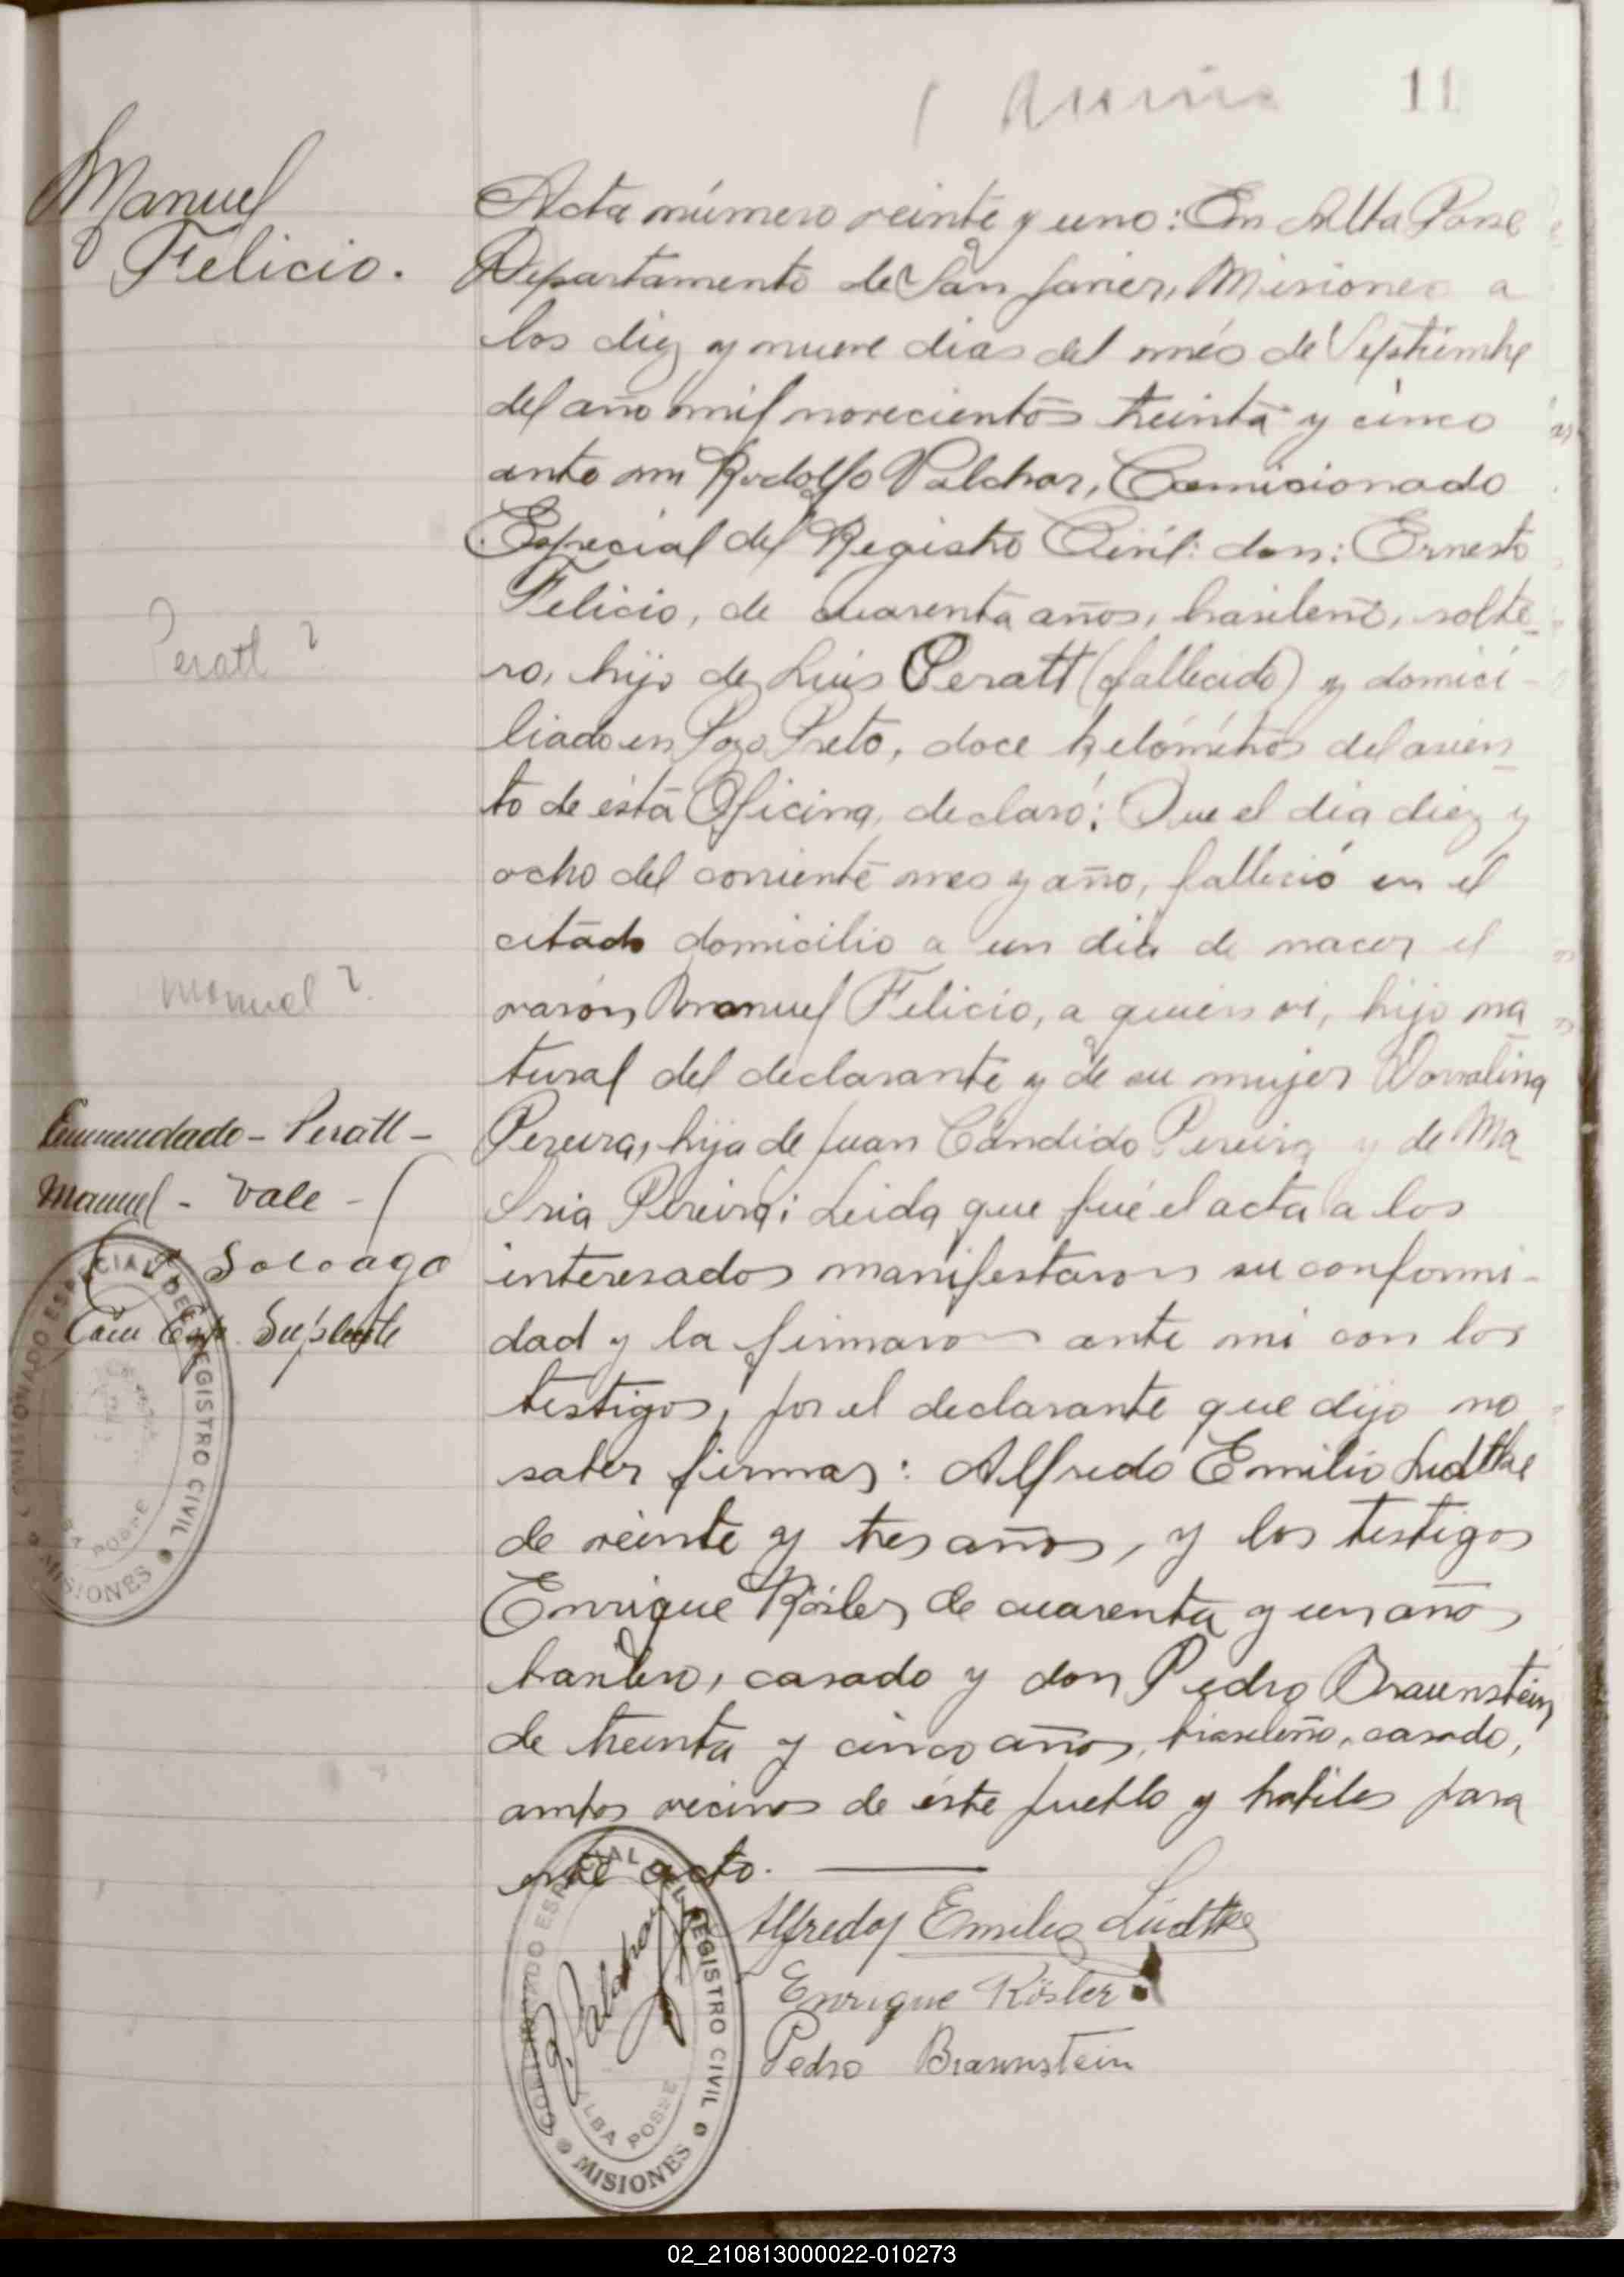 11
Manuel
Felicio.
Acta número veinte y uno: En Alba Posse
Departamento de San Javier, Misiones a
los diez y nueve dias del més de Septiembre
del año mil novecientos treinta y cinco
ante mi Rodolfo Palchor, Comisionado
Especial del Registro Civil: don: Ernesto
Felicio, de cuarenta años, brasileño, solte-
ro, hijo de Luis Peratt (fallecido) y domici-
liado en Pozo Preto, doce kilómetros del asien-
to de ésta Oficina, declaró: Que el dia diez y
ocho del corriente mes y año, falleció en el
citado domicilio a un dia de nacer el
varón Manuel Felicio, a quien vi, hijo na
tural del declarante y de su mujer
Pereira, hija de Juan Cándido Pereira y de Ma
Pereira; Leida que fué el acta a los
interesados manifestaron su conformi-
dad y la firmaron ante mi con los
testigos, por el declarante que dijo no
saber firmar: Alfredo Emilio Ludtke
de veinte y tres años, y los testigos
Enrique Kösler de cuarenta y un años
casado y don Pedro Braunstein
de treinta y cinco años, brasileño, casado,
ambos vecinos de éste pueblo y habiles para
este acto.
Peratt ?
Manuel ?
Enmendado - Peratt -
Manuel - Vale -
Com Esp. Suplente
COMISIONADO ESPECIAL DEL REGISTRO CIVIL
ALBA POSSE
MISIONES
Alfredo Emilio Lüdtke
Enrique Kösler
Pedro Braunstein
COMISIONADO ESPECIAL DEL REGISTRO CIVIL
ALBA POSSE
MISIONES
02_210813000022-010273